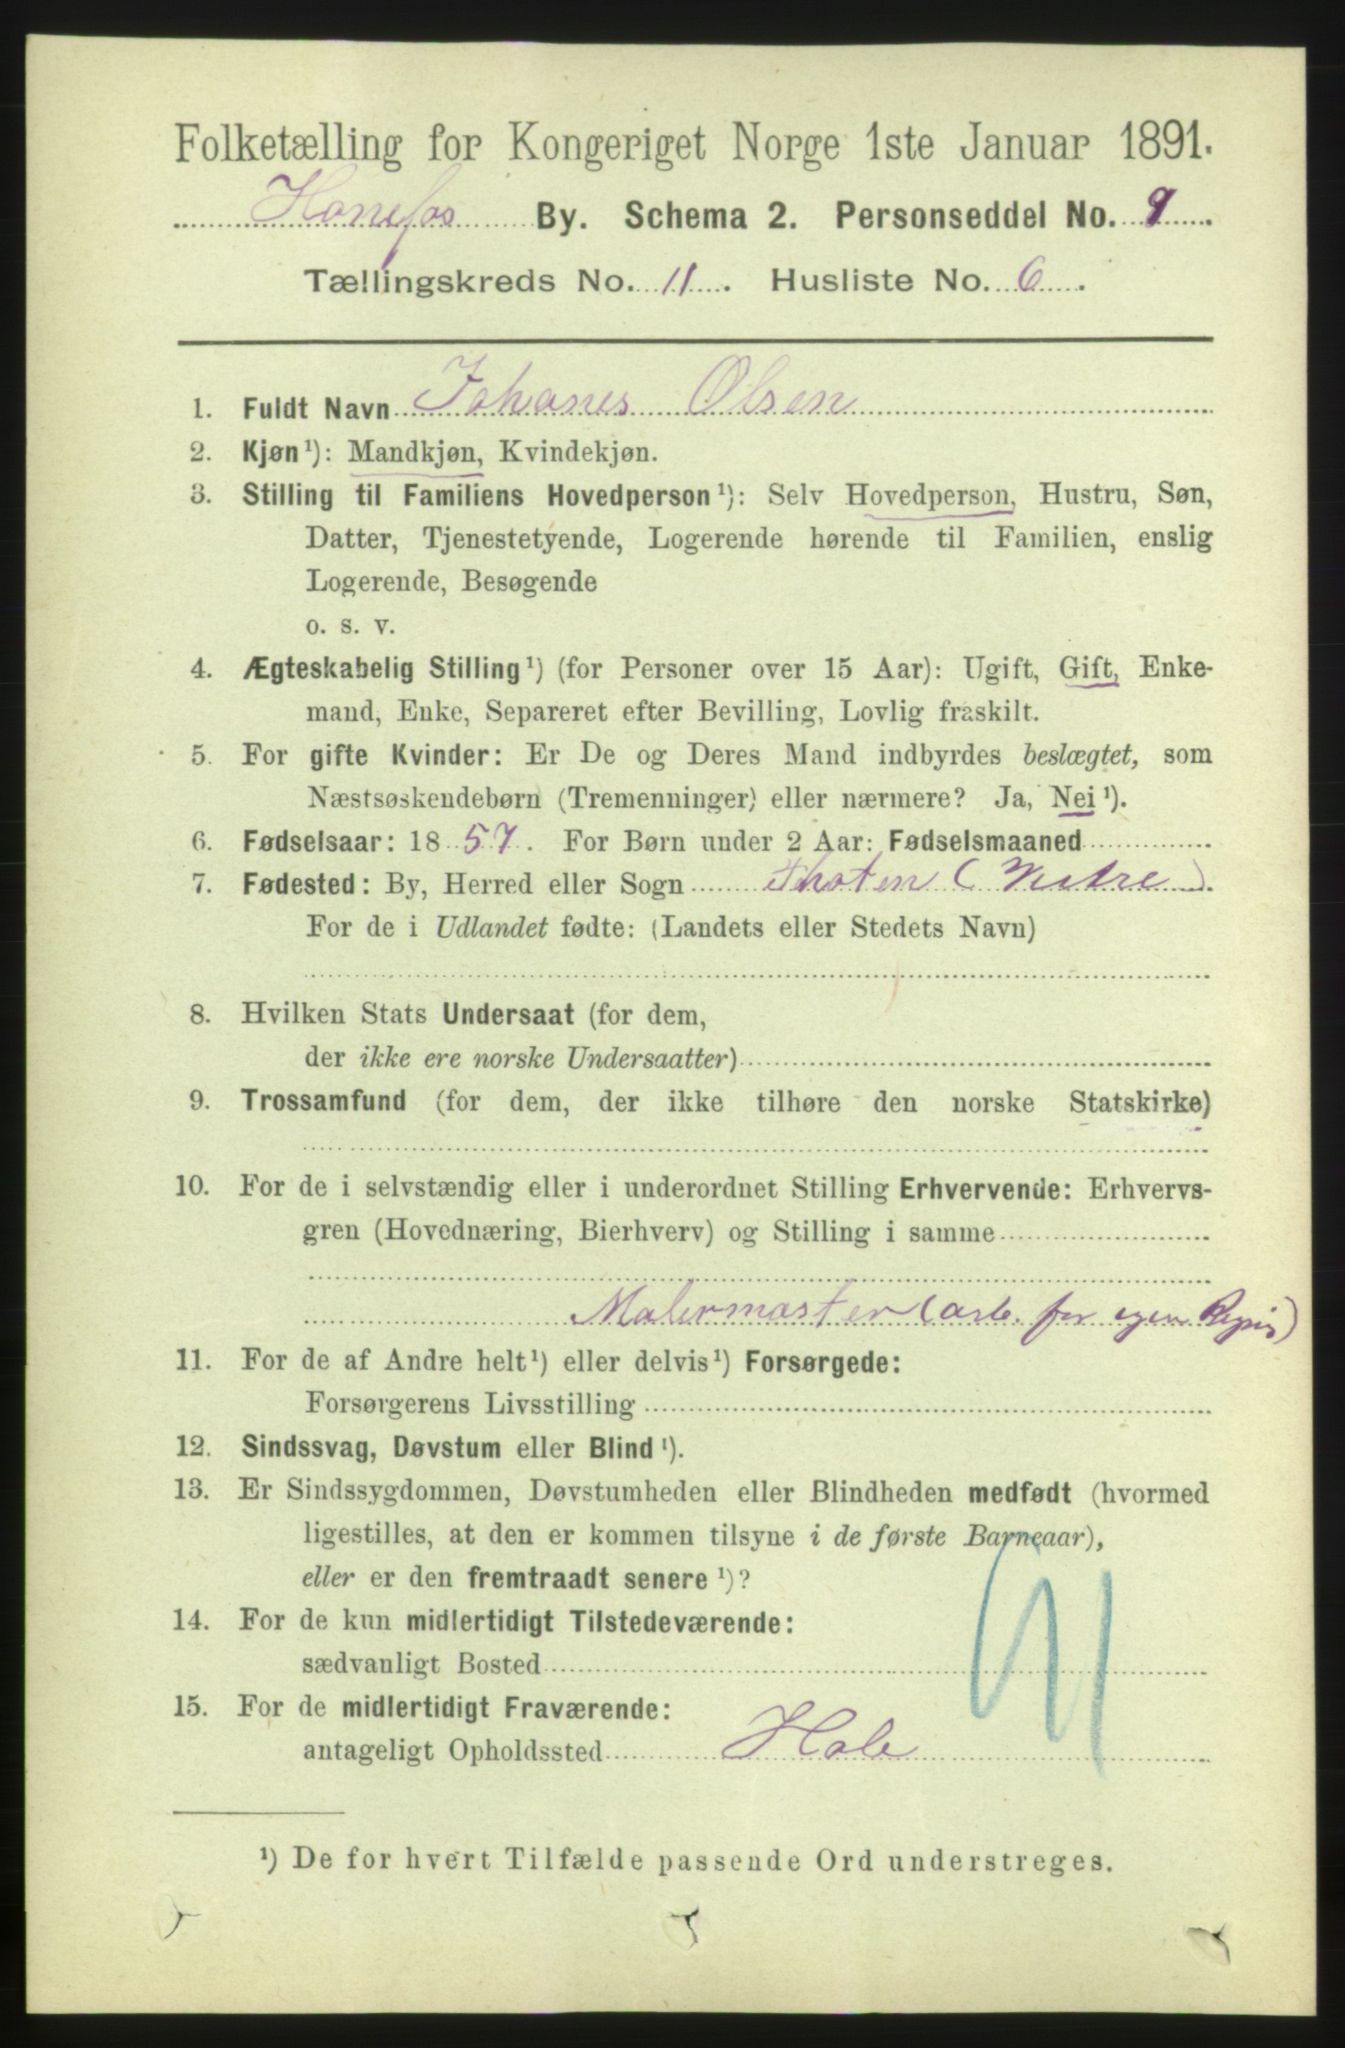 Folketælling for Kongeriget Norge 1ste Januar 1891.
Hønefos By. Schema 2. Personseddel No. 9
Tællingskreds No. 11. Husliste No. 6.
1. Fuldt Navn Johanes Olsen
2. Kjøn¹): Mandkjøn, Kvindekjøn.
3. Stilling til Familiens Hovedperson¹): Selv Hovedperson, Hustru, Søn,
Datter, Tjenestetyende, Logerende hørende til Familien, enslig
Logerende, Besøgende
o. s. v.
4. Ægteskabelig Stilling¹) (for Personer over 15 Aar): Ugift, Gift, Enke-
mand, Enke, Separeret efter Bevilling, Lovlig fraskilt.
5. For gifte Kvinder: Er De og Deres Mand indbyrdes beslægtet, som
Næstsøskendebørn (Tremenninger) eller nærmere? Ja, Nei¹).
6. Fødselsaar: 1857. For Børn under 2 Aar: Fødselsmaaned
7. Fødested: By, Herred eller Sogn Thoten (Vestre)
For de i Udlandet fødte: (Landets eller Stedets Navn)
8. Hvilken Stats Undersaat (for dem,
der ikke ere norske Undersaatter)
9. Trossamfund (for dem, der ikke tilhøre den norske Statskirke)
10. For de i selvstændig eller i underordnet Stilling Erhvervende: Erhvervs-
gren (Hovednæring, Bierhverv) og Stilling i samme
Malermaster (arb. for egen Regni)
11. For de af Andre helt¹) eller delvis¹) Forsørgede:
Forsørgerens Livsstilling
12. Sindssvag, Døvstum eller Blind¹).
13. Er Sindssygdommen, Døvstumheden eller Blindheden medfødt (hvormed
ligestilles, at den er kommen tilsyne i de første Barneaar),
eller er den fremtraadt senere¹)?
14. For de kun midlertidigt Tilstedeværende:
sædvanligt Bosted
15. For de midlertidigt Fraværende:
antageligt Opholdssted Hole
¹) De for hvert Tilfælde passende Ord understreges.